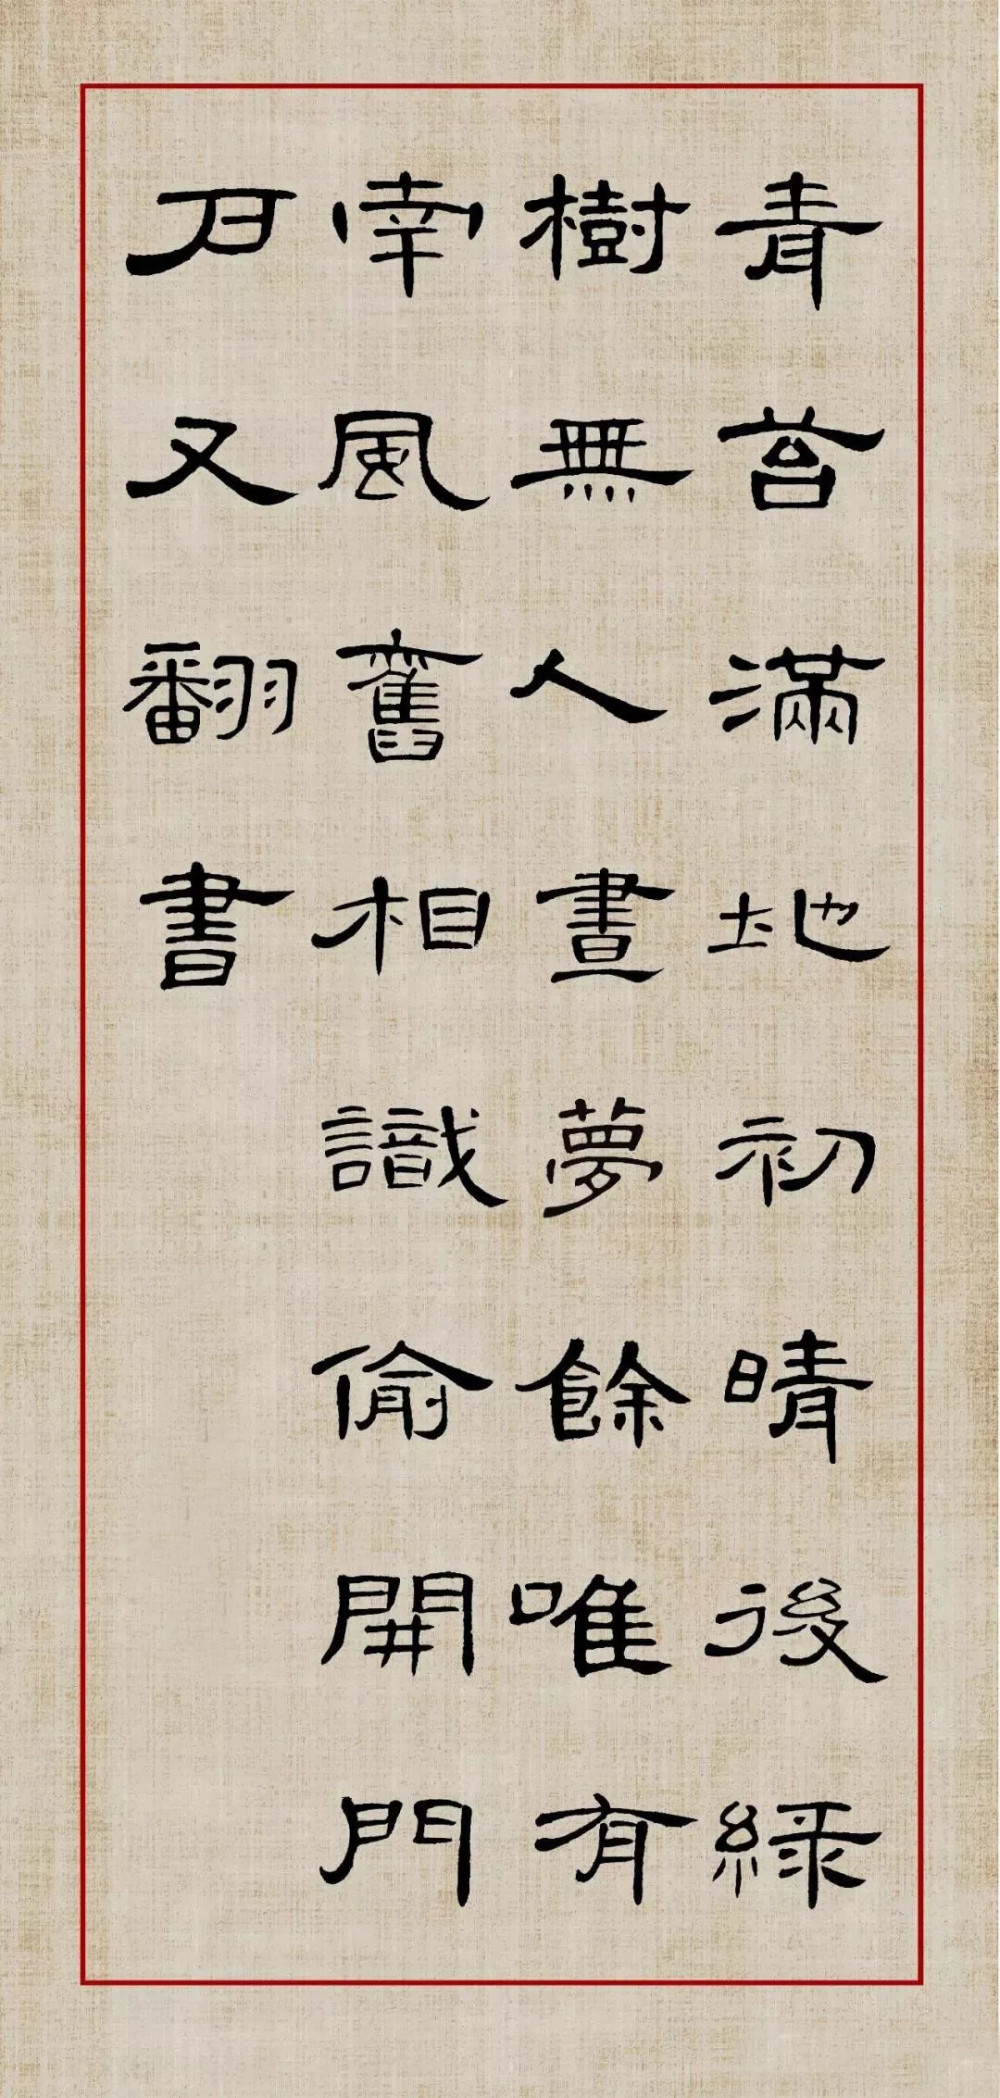 青苔滿地初晴後緑
樹無人晝夢餘唯有
南風舊相識偷開門
戶又翻書